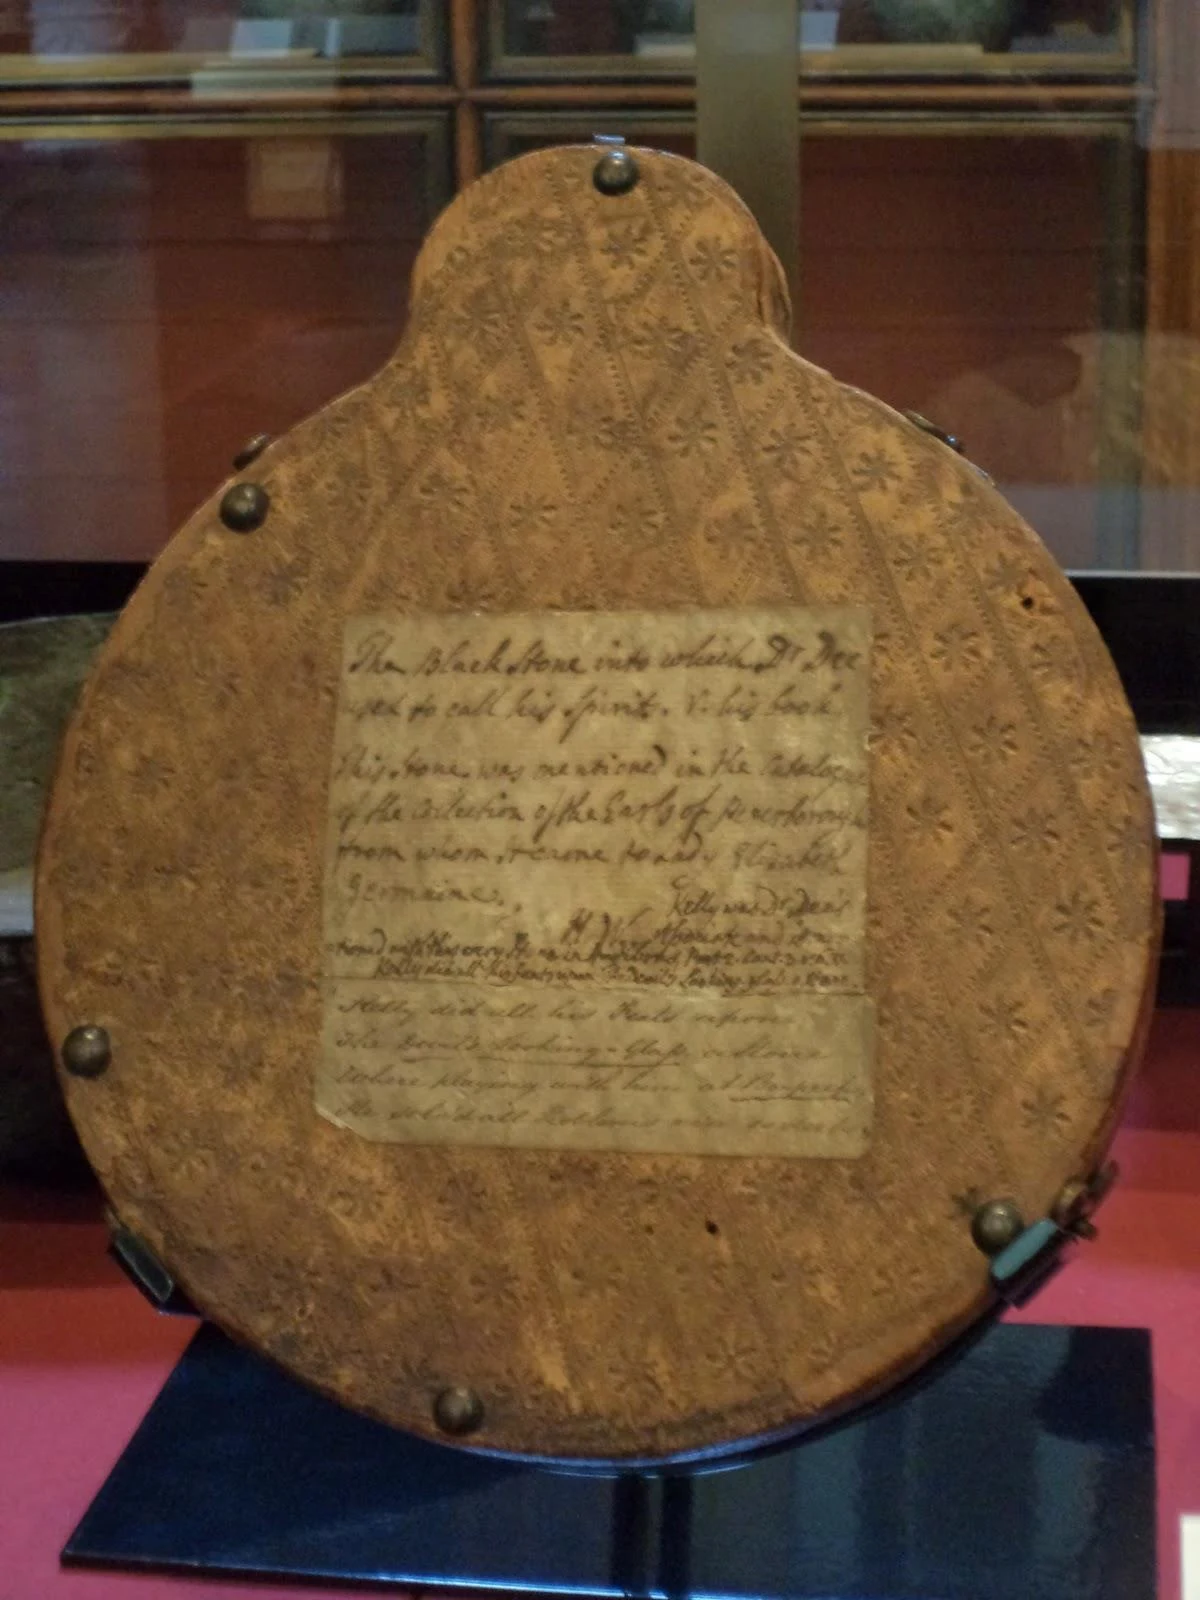 The Black Stone into which Dr Dee
used to call his Spirits. V. his book.
This Stone was mentioned in the Catalogue
of the Collection of the Earls of Peterborough
from whom it came to Lady Elizabeth
Germaine.
H. W.
Kelly was Dr Dee's
Associate and is men-
tioned with this very Stone in Hudibras, Part 2. Cant. 3. v.
Kelly did all his feats upon The Devil's Looking-glass, a Stone.
Kelly did all his Feats upon
The Devil's Looking-Glass, a Stone
Where playing with him at Bo-peep
He solv'd all Problems ne'er so deep.